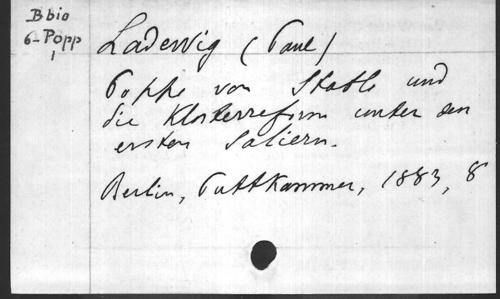 Bbio
6-Popp
1
Ladewig (Paul)
Poppo von Stablo und
die Klosterreform unter den
ersten Saliern.
Berlin, Puttkammer, 1883, 8